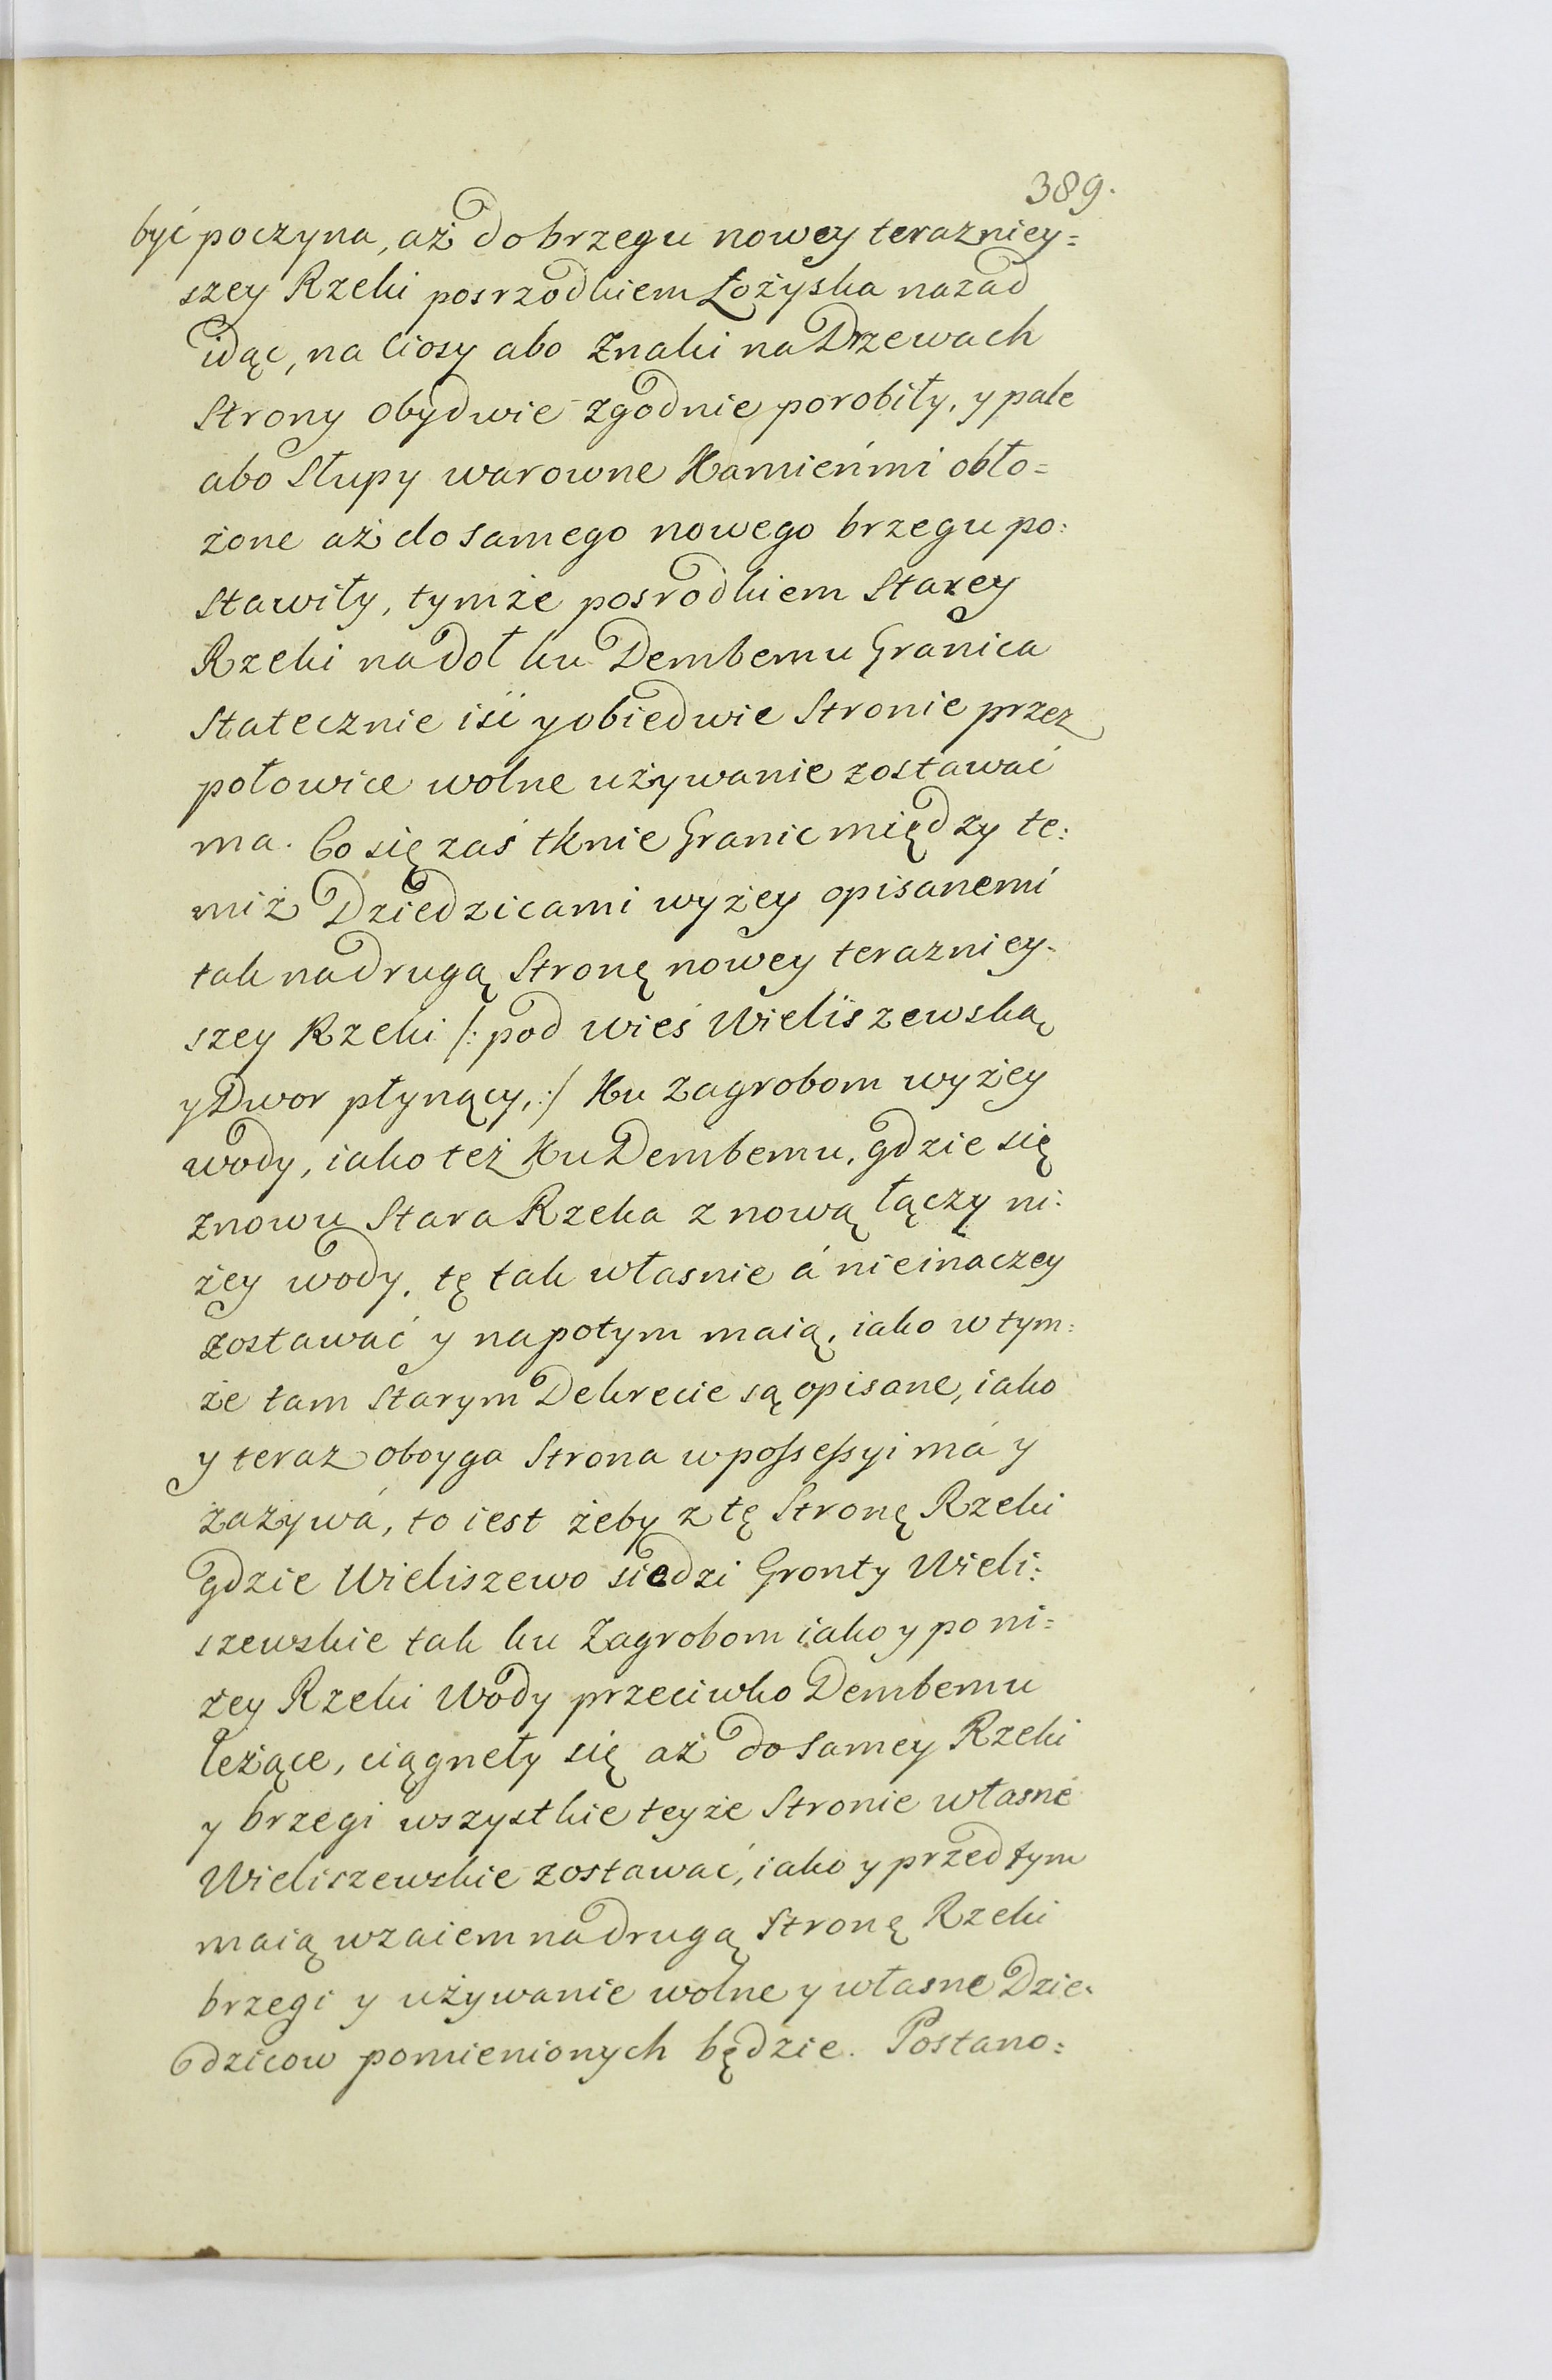 389.
być poczyna, aż do brzegu nowey terazniey=
szey Rzeki posrzodkiem Łożyska nazad
idąc, na Ciosy abo Znaki na Drzewach
Strony obydwie zgodnie porobiły, y pale
abo Słupy warowne Kamieńmi obło=
żone aż do samego nowego brzegu po:
stawiły, tymże posrodkiem Starey
Rzeki nadoł ku Dembemu Granica
Statecznie iść y obiedwie Stronie przez
połowice wolne używanie zostawać
ma. Co się zaś tknie Granic między te:
miż Dziedzicami wyżey opisanemi
tak na drugą Stronę nowey terazniey-
szey Rzeki /: pod wieś Wieliszewską
y Dwor płynący, :/ Ku Zagrobom wyżey
wody, iako też Ku Dembemu, gdzie się
znowu Stara Rzeka z nową łączy ni:
żey wody, tę tak własnie á nieinaczey
zostawać y napotym maią, iako w tym:
że tam Starym Dekrecie są opisane, iako
y teraz oboyga Strona w possessyi má y
zażywá, to iest żeby z tę Stronę Rzeki
gdzie Wieliszewo siedzi Gronty Wieli:
szewskie tak ku Zagrobom iako y po ni=
żey Rzeki Wody przeciwko Dembemu
leżące, ciągneły się aż do samey Rzeki
y brzegi wszystkie teyże Stronie własne
Wieliszewskie zostawać, iako y przed tym
maią wzaiem na drugą Stronę Rzeki
brzegi y używanie wolne y własne Dzie-
dzicow pomienionych będzie. Postano=